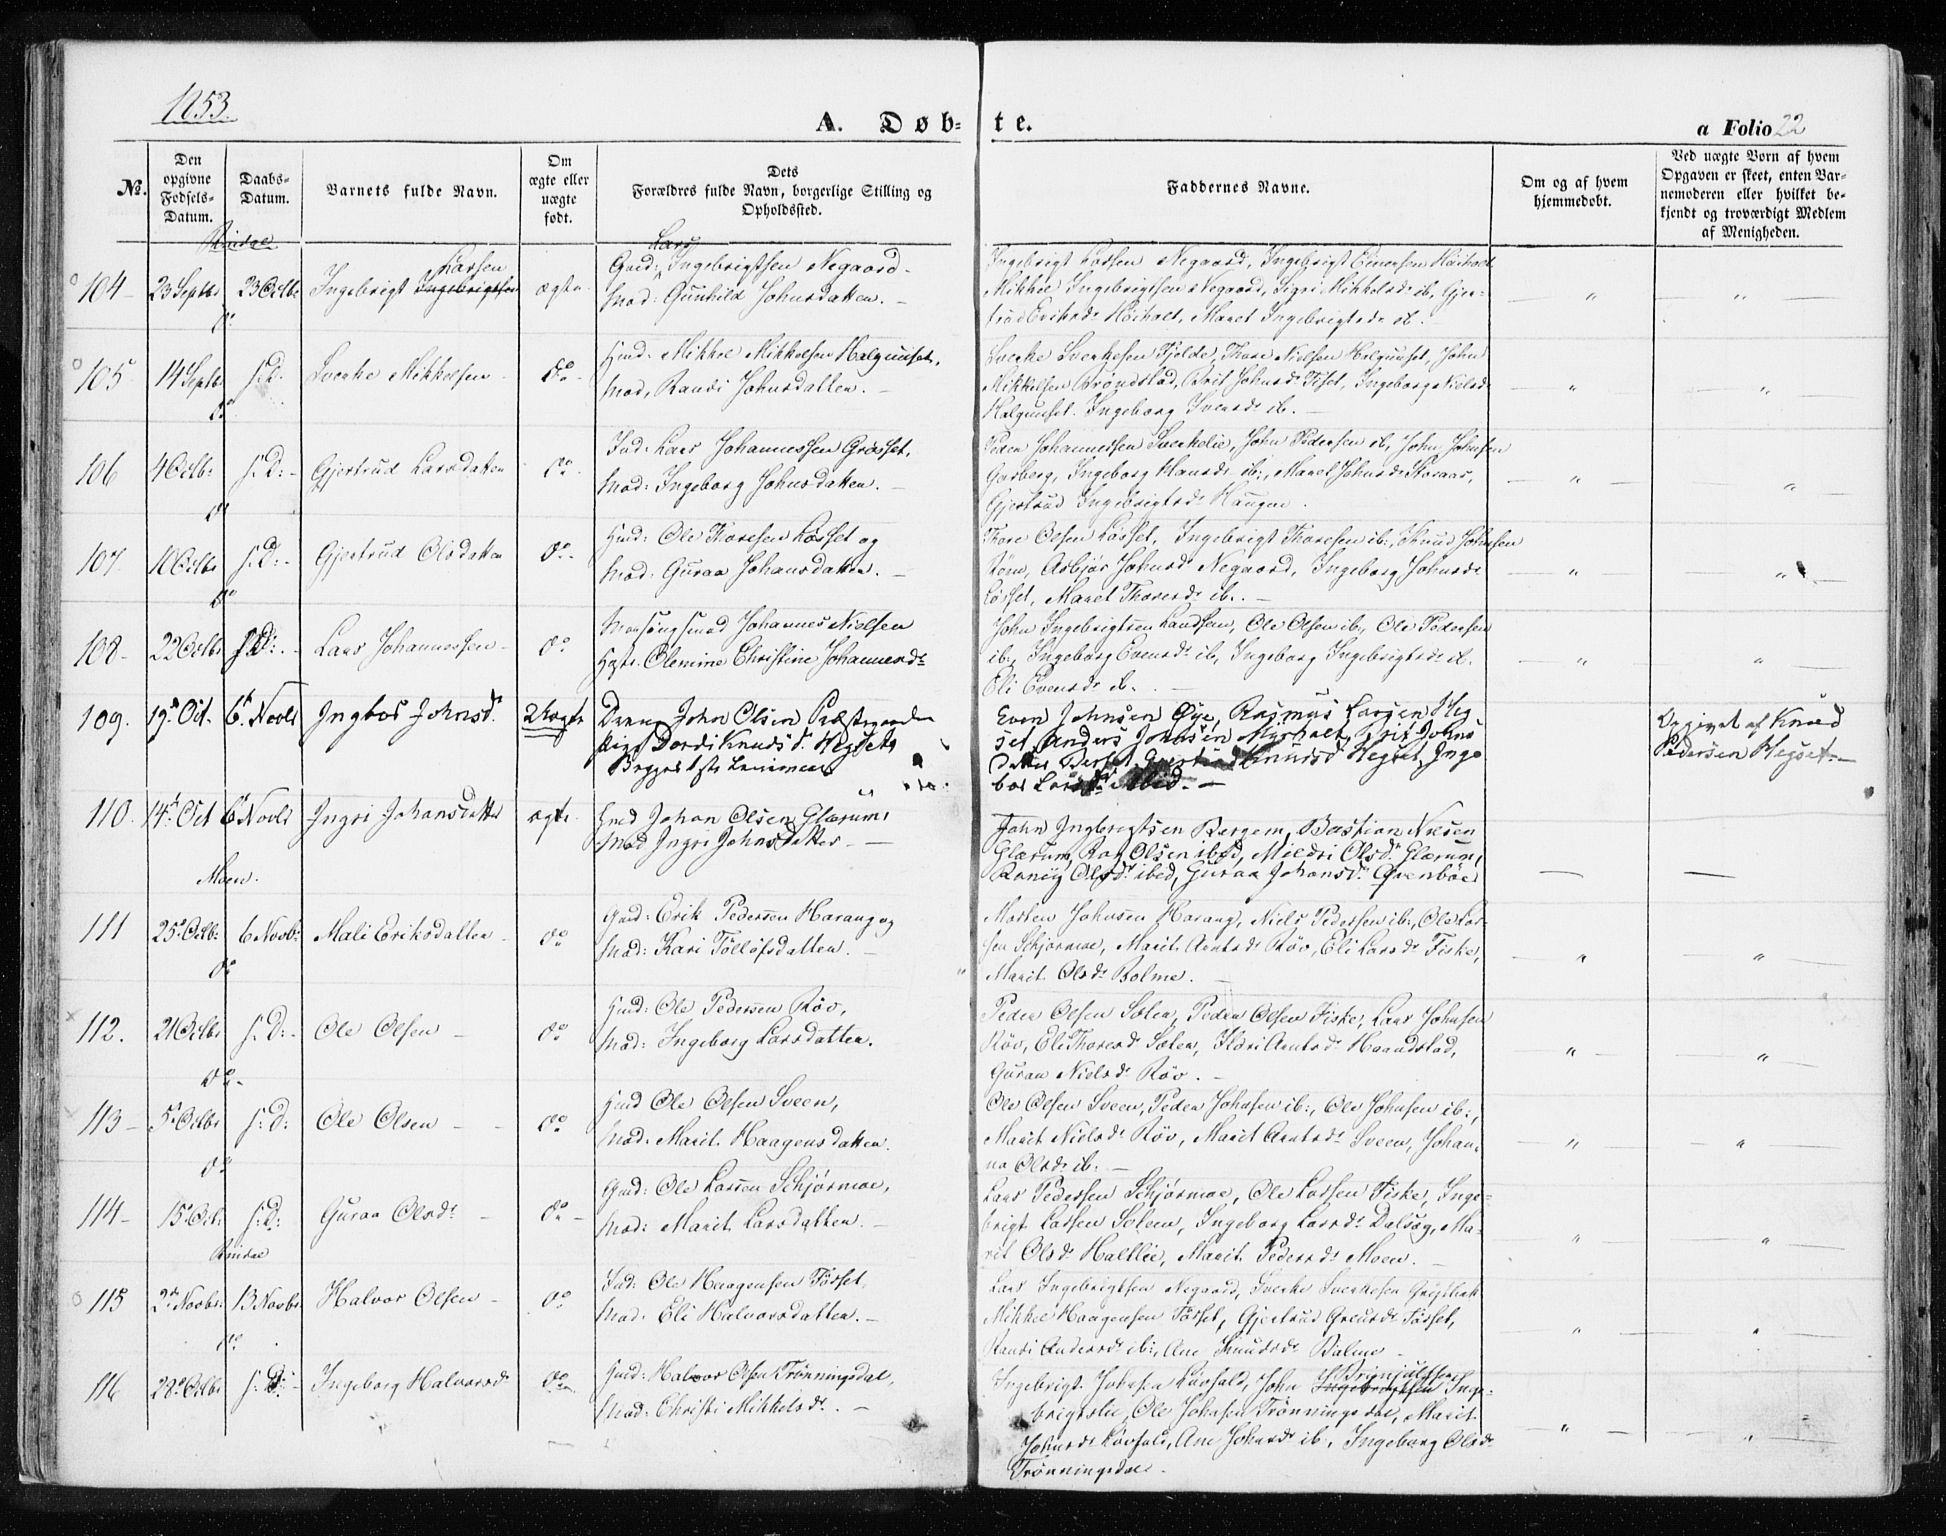 1853.
A. Døb-
te.
a Folio 22
No.
Den opgivne Fødsels-Datum.
Daabs-Datum.
Barnets fulde Navn.
Om ægte eller uægte født.
Dets Forældres fulde Navn, borgerlige Stilling og Opholdssted.
Faddernes Navne.
Om og af hvem hjemmedøbt.
Ved uægte Børn af hvem Opgaven er skeet, enten Barnemoderen eller hvilket bekjendt og troværdigt Medlem af Menigheden.
Rindal
104 23 Septbr 23 Octbr Ingebrigt Ingebrigtsen Larsen ægte
Gmd: Lars Ingebrigtsen Negaard
Mod: Gunhild Johnsdatter.
Ingebrigt Larsen Negaard, Ingebrigt Høiholt
Mikkel Ingebrigtsen Negaard, Sigri Mikkelsdr ib, Gjer-
trud Høiholt, Maret Ingebrigtsdr ib.
do
105 14 Septbr s: D. Sverke Mikkelsen do
Gmd: Mikkel Mikkelsen Helgumset,
Mod, Randi Johnsdatter.
Sverke Sverkesen Fjelde, Thore Nielsen Helgumset, John
Mikkelsen Brøndstad, Brit Johnsdr Fiset, Ingeborg Nielsdr
Helgumset. Ingeborg Svensdr ib.
do
106 4 Octbr s: D: Gjertrud Larsdatter do
Ind: Lars Johannessen Grøset,
Mod: Ingeborg Johnsdatter.
Peder Johannessen Sverkelie, John Pedersen ib, John Johnsen
Garberg, Ingeborg Hansdr ib:, Maret Johnsdr
Gjertrud Ingebrigtsdr Haugen.
do
107. 10 Octbr s: D: Gjertrud Olsdatter do
Gmd: Ole Thoresen Løsset og
Mod: Guraa Johansdatter.
Thore Olsen Løsset, Ingebrigt Thoresen ib:, Knud Johnsen
Røen, Asbjør Johnsdr Negaard, Ingeborg Johnsdr
Løsset, Maret Thoresdr ib.
do
108 22 Octbr s: D: Lars Johannessen do
Johannes Nielsen
Olemine Christine Johannesdr
John Ingebrigtsen Ole Olsen ib, Ole Pedersen
ib:, Ingeborg Evensdr ib, Ingeborg Ingebrigtsdr ib.
Eli Evensdr ib.
109. 19de Oct. 6te Novbr Ingbor Johnsdr.
John Olsen Præstgaarden
Pige Dordi Knudsdr. Hegset
Begges
Even Johnsen Øye, Rasmus Larsen Heg-
set, Anders Johnsen Myrholt, Brit Johns-
datter Knudsd Hegset, Inge-
bor Larsdtr Ibid.
Opgivet af Knud
Pedersen Hegset.
110. 14de Oct 6te Novbr Ingri Johansdatter ægte
Gmd Johan Olsen Glærum,
Mod Ingri Johnsdatter
John Ingbrigtsen Bergem, Bastian Nilsen
Glærum, Roar Olsen ibed, Mildri Olsdr. Glærum,
Olsdr. ibed, Guraa Johansdr.
Moen.
111 25de Octbr: 6 Novbr: Mali Eriksdatter do
Gmd: Erik Pedersen Harang og
Mod: Kari Tøllefsdatter.
Morten Johnsen Harang, Niels Pedersen ib:, Ole Lar-
sen Schjørmoe, Marit Arntsdr Røv, Eli Larsdr Fiske,
Marit Olsdr Bolme.
do
112. 21 Octbr s: D: Ole Olsen do
Gmd: Ole Pedersen Røv,
Mod: Ingeborg Larsdatter.
Peder Olsen Sæten, Peder Olsen Fiske, Lars Johnsen
Røv, Eli Thoresd Sæten, Ildri Arntsdr Haandstad,
Guraa Nielsdr Røv.
do
113 5te Octbr s: D: Ole Olsen do
Gmd Ole Olsen Sveen,
Mod: Marit Haagensdatter.
Ole Olsen Sveen, Peder Johnsen ib:, Ole Johnsen ib:,
Marit Nielsdr Røv, Marit Arntsdr Sveen, Johan-
na Olsdr ib.
do
114 15 Oct: s: D: Guraa Olsdr do
Gmd: Ole Larsen Schjørmoe,
Mod: Marit Larsdatter.
Lars Pedersen Schjørmoe, Ole Larsen Fiske, Inge-
brigt Larsen Sæten, Ingeborg Larsdr Dalsæg, Ma-
rit Olsdr Haltlie, Marit Pedersdr Moen.
Rindal
115 2den Novbr: 13 Novbr. Halvor Olsen do
Ind: Ole Haagensen Tøsset,
Mod: Eli Halvorsdatter.
Lars Ingebrigtsen Negaard, Sverke Sverkesen
Mikkel Haagensen Tøsset, Gjertrud Tøsset,
Randi Andersdr ib:, Ane Knudsdr Bolme
do
116 28de Octbr s: D: Ingeborg Halvorsdr do
Gmd: Halvor Olsen Trønningsdal,
Mod: Christi Mikkelsdr.
Ingebrigt Johnsen Løvfald, John Ingebrigtsen Brynjulfsen Inge-
brigtslie, Ole Johnsen Trønningsdal, Marit
Johnsdr Løvfald, Ane Johnsdr ib:, Ingeborg Olsdr
Trønningsdal.